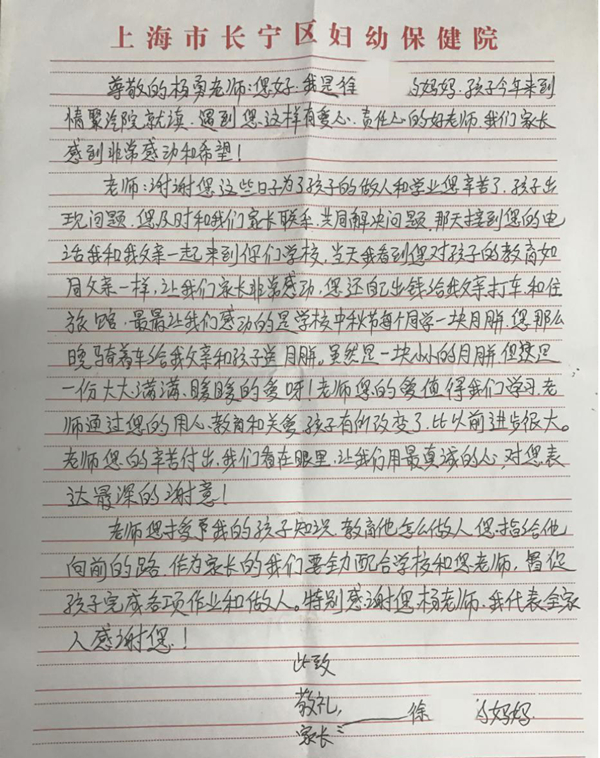 上海市长宁区妇幼保健院
尊敬的杨勇老师:您好.我是徐 的妈妈.孩子今年来到
情聚汽院就读.遇到您这样有爱心.责任心的好老师.我们家长
感到非常感动和希望!
老师:谢谢您这些日子为了孩子的做人和学业您辛苦了.孩子出
现问题.您及时和我们家长联系.共同解决问题.那天接到您的电
话我和我父亲一起来到你们学校.当天我看到您对孩子的教育如
同父亲一样,让我们家长非常感动.您还自己出钱给我父亲打车.和住
旅店.最最让我们感动的是学校中秋节每个同学一块月饼.您那么
晚骑着车给我父亲和孩子送月饼。虽然是一块小小的月饼但这是
一份大大.满满.暖暖的爱呀!老师您的爱值得我们学习.老
师通过您的用心.教育和关爱.孩子有所改变了.比以前进步很大。
老师您的辛苦付出.我们看在眼里.让我们用最真诚的心.对您表
达最深的谢意!
老师您授予我的孩子知识.教育他怎么做人.您指给他
向前的路.作为家长的我们要全力配合学校和您老师,督促
孩子完成各项作业和做人。特别感谢您.杨老师.我代表全家
人感谢您.!
此致
敬礼,
家长: 徐 的妈妈.